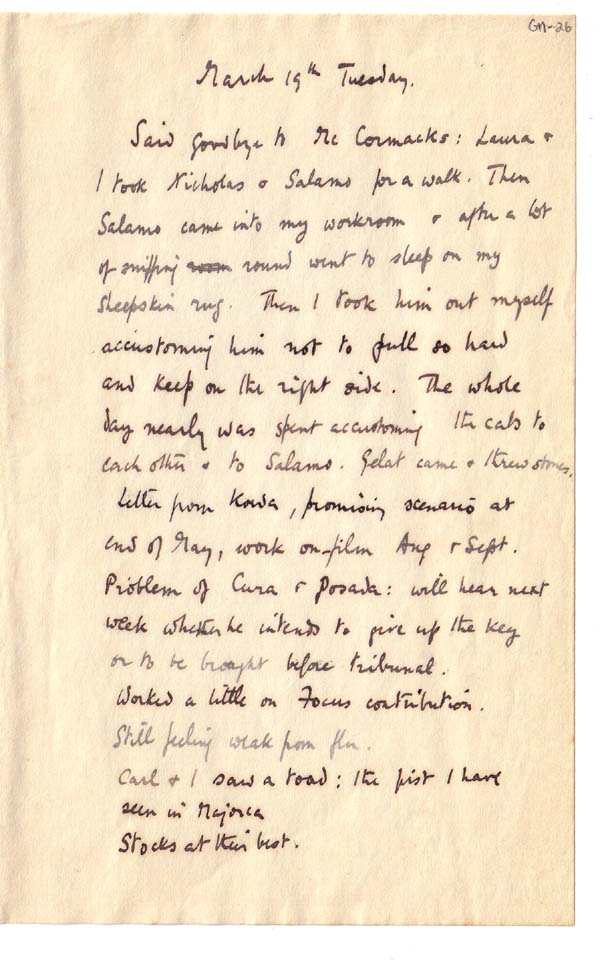 GM-26
March 19th Tuesday.
Said goodbye to McCormacks: Laura &
I took Nicholas & Salamo for a walk. Then
Salamo came into my workroom & after a lot
of sniffing room round went to sleep on my
sheepskin rug. Then I took him out myself
accustoming him not to pull so hard
and keep on the right side. The whole
day nearly was spent accustoming the cats to
each other & to Salamo. Gelat came & threw stones.
Letter from Korda, promising scenario at
end of May, work on film Aug & Sept.
Problem of Cura & Posada: will hear next
week whether he intends to give up the key
or to be brought before tribunal.
Worked a little on Focus contribution.
Still feeling weak from flu.
Carl & I saw a toad: the first I have
seen in Majorca
Stocks at their best.